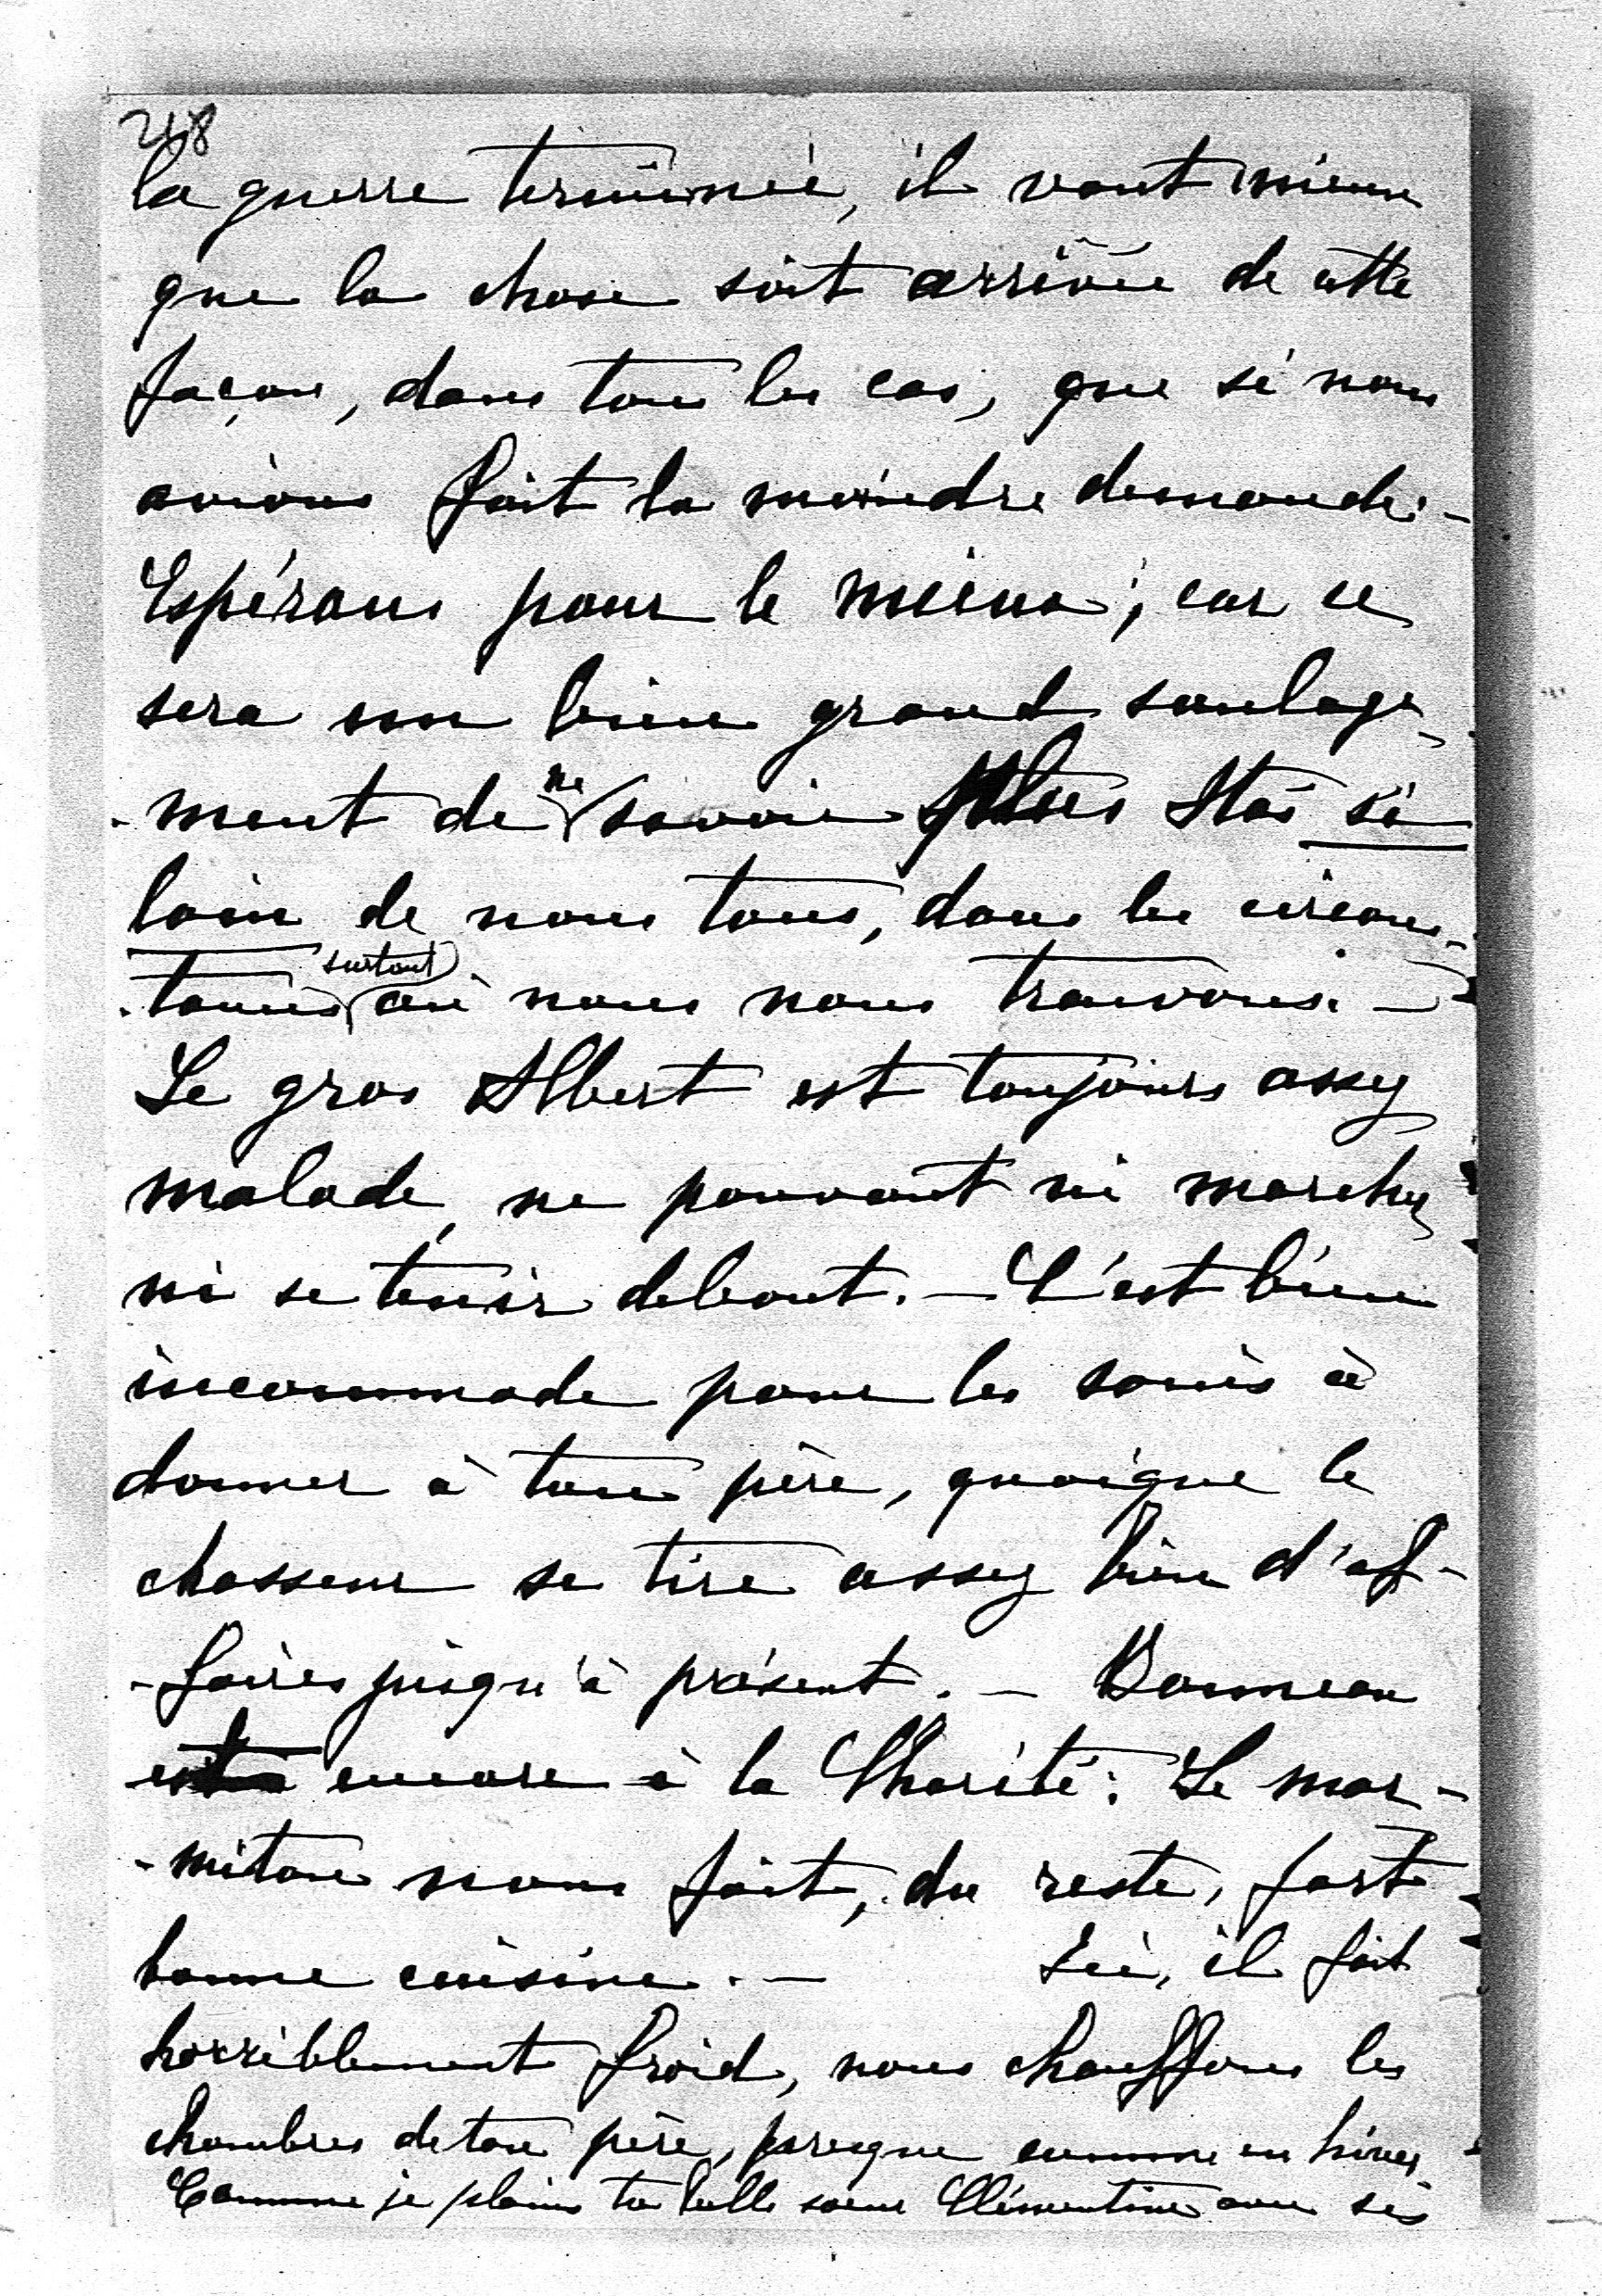 248
la guerre terminée, il vaut mieux
que la chose soit arrivée de cette
façon, dans tous les cas, que si nous
avions fait la moindre demande. -
Espérons pour le mieux ; car ce
sera un bien grand soulage-
-ment de ne savoir plus Stas si
loin de nous tous, dans les circons-
-tances surtout où nous nous trouvons. -
Le gros Albert est toujours assez
malade, ne pouvant ni marcher
ni se tenir debout. - C'est bien
incommode pour les soins à
donner à ton père, quoique le
chasseur se tire assez bien d'af-
-faires jusqu'à présent. - Bonneau
est encore à la Charité. Le mar-
-miton nous fait, du reste, fort
bonne cuisine. - Ici, il fait
horriblement froid, nous chauffons les
chambres de ton père, presque comme en hiver.
Comme je plains ta belle soeur Clémentine avec ses